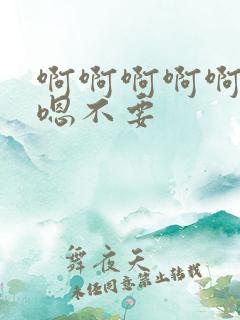 啊啊啊啊啊
嗯不要
舞夜天
未经同意禁止转载